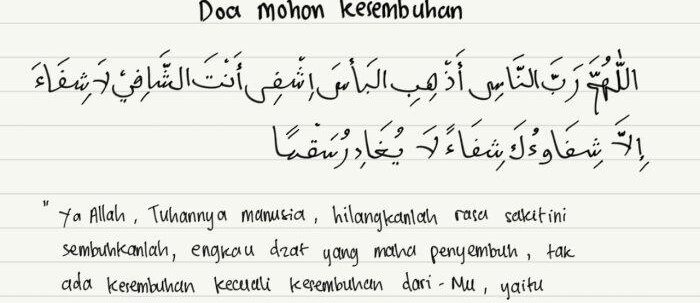 Doa mohon kesembuhan
اللّٰهُمَّ رَبَّ النَّاسِ أَذْهِبِ البَأْسَ اِشْفِى أَنْتَ الشَّافِيْ لَا شِفَاءَ
إِلَّا شِفَاوُكَ شِفَاءً لَا يُغَادِرُ سَقْمًا
"Ya Allah, Tuhannya manusia, hilangkanlah rasa sakit ini
sembuhkanlah, engkau dzat yang maha penyembuh, tak
ada kesembuhan kecuali kesembuhan dari-Mu, yaitu